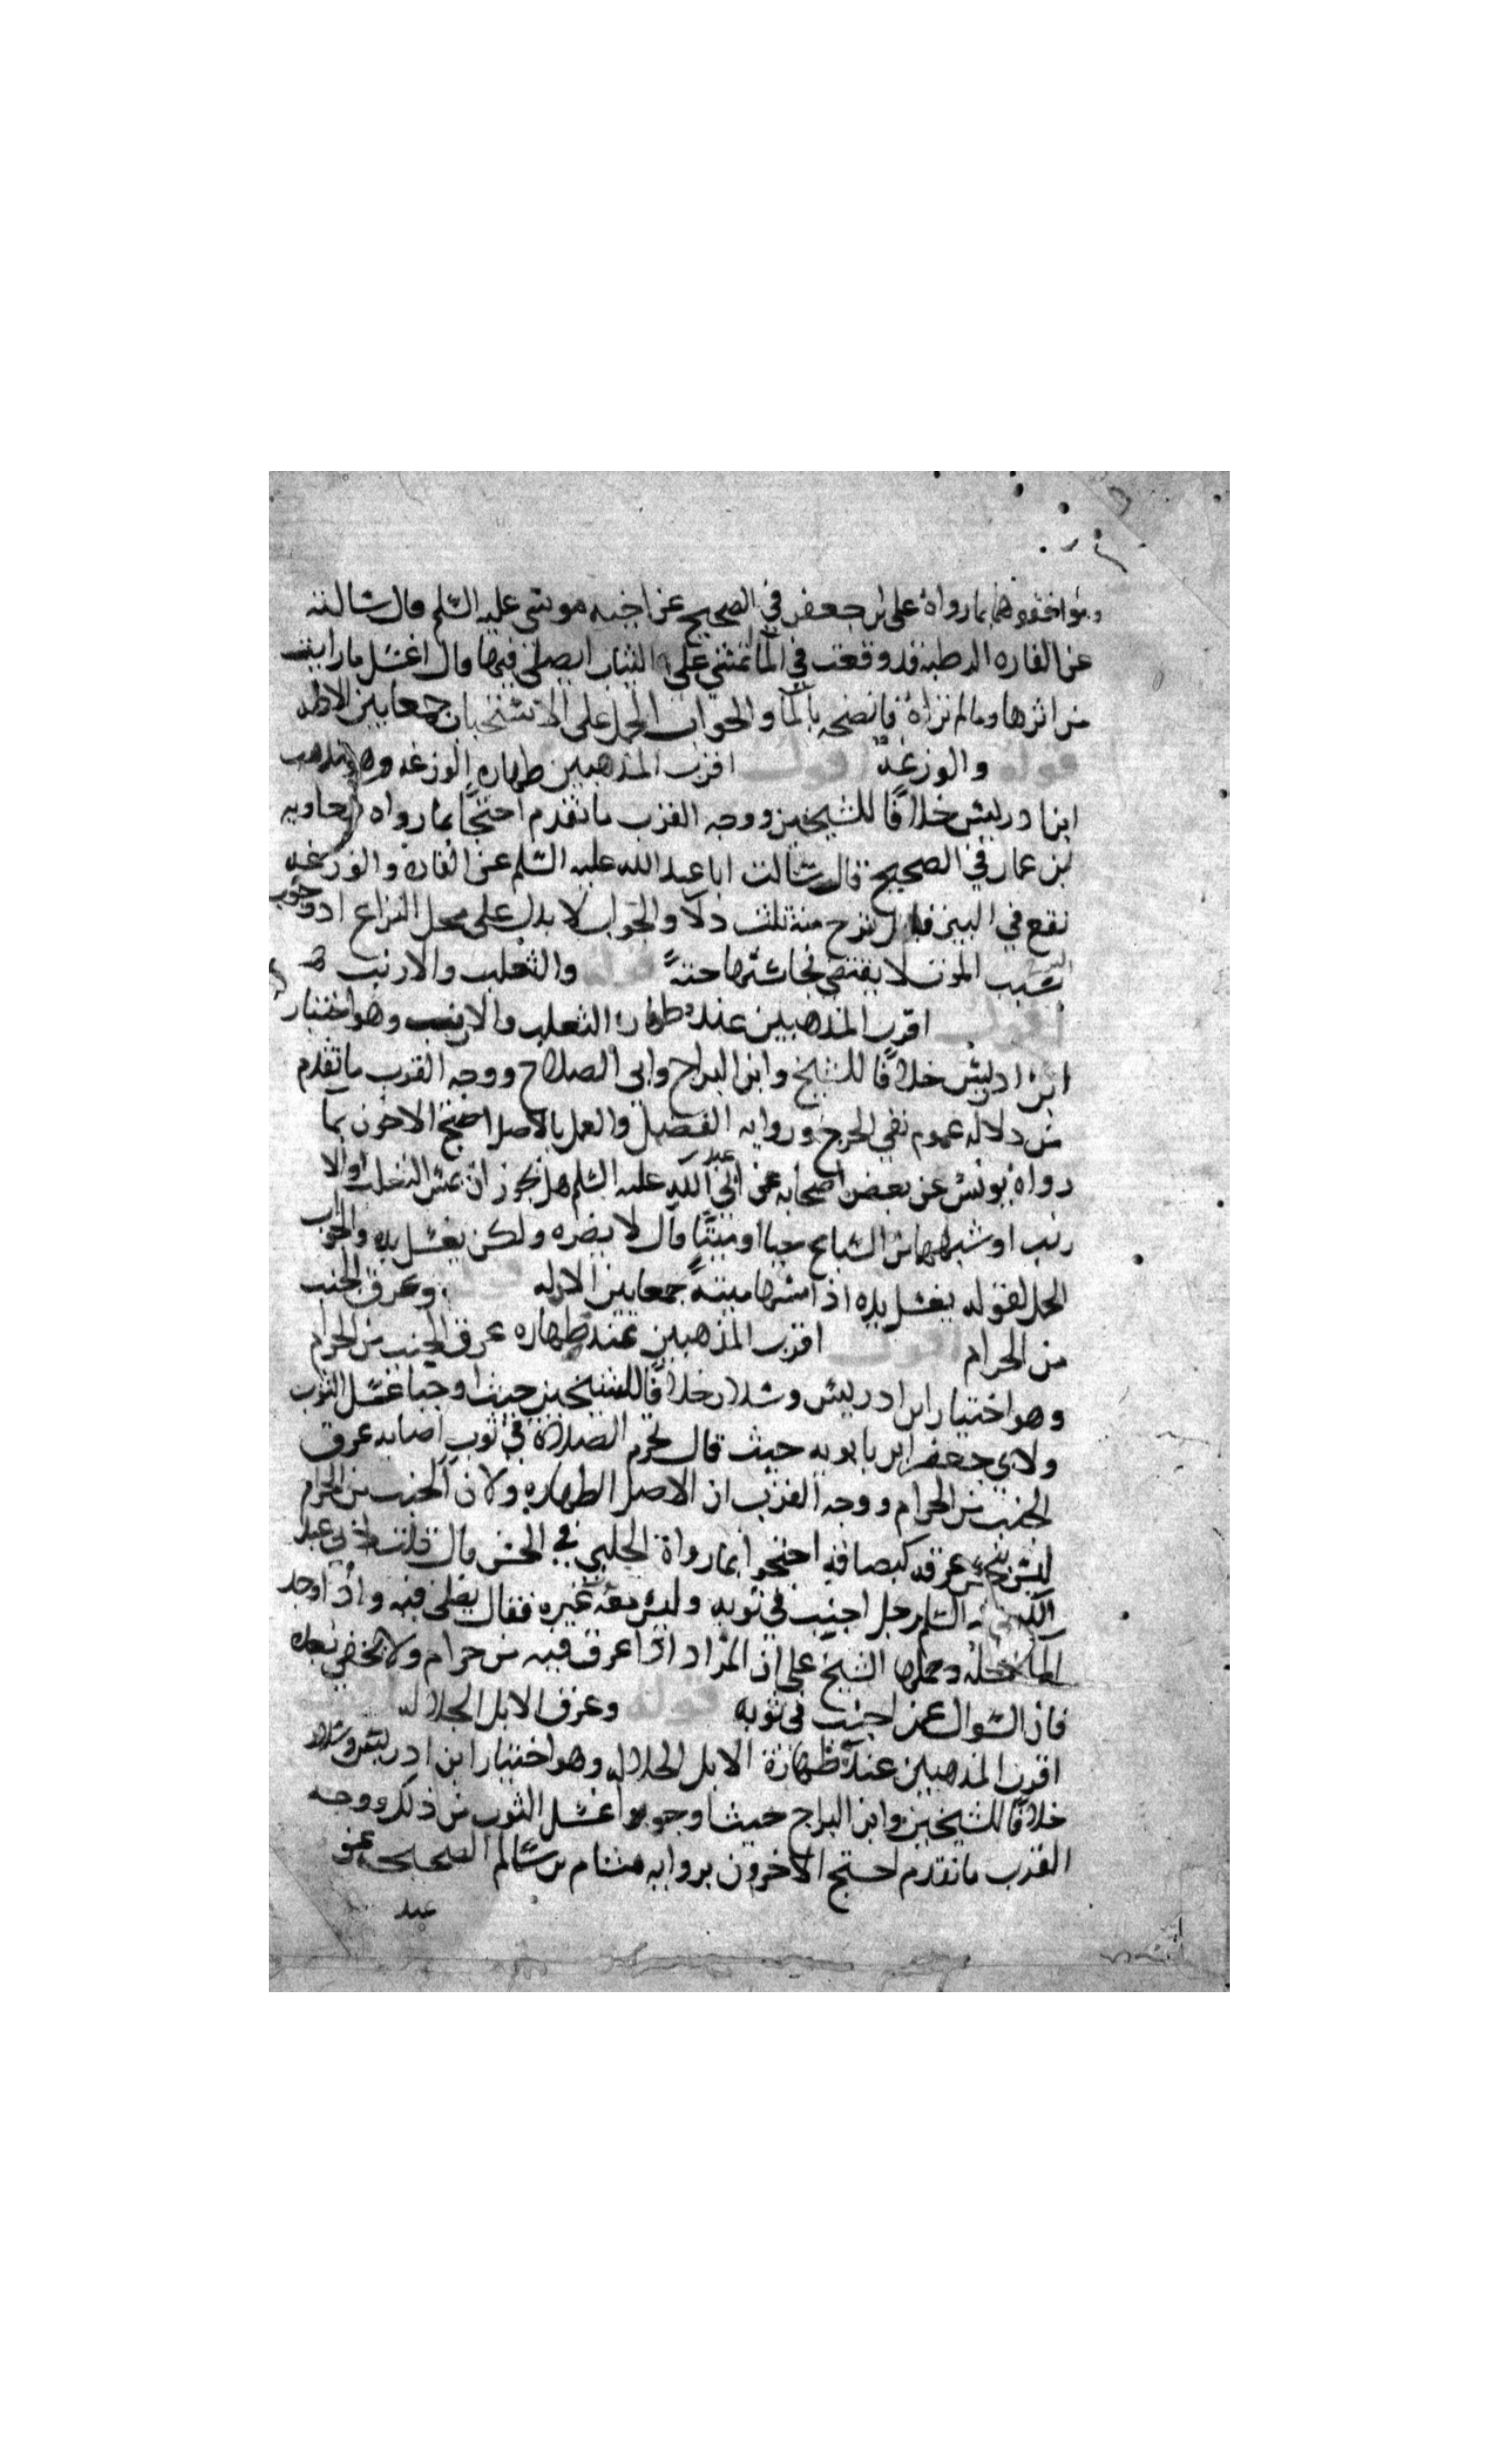 وموافقوهما بما رواه على بن جعفر في الصحيح عن اخيه موسى عليه السلم قال سالته
عن الفاره الرطبه قد وقعت في الما تمشي على الثياب ايصلى فيها قال اغسل ما رايت
من اثرها وما لم تراه فانضحه بالما والجواب الحمل على الاستحباب جمعا بين الادله
قوله والوزغة اقول اقرب المذهبين طهاره الوزغه وهو مذهب
ابن ادريس خلافا للشيخين ووجه القرب ما تقدم احتجا بما رواه معاويه
بن عمار في الصحيح قال سالت ابا عبد الله عليه السلم عن الفاره والوزغه
تقع في البير قال ينزح منه ثلث دلا والجواب لا يدل على محل النزاع اذ وجوب
بسبب الموت لا يقتضي نجاستها حية قوله والثعلب والارنب
اقول اقرب المذهبين عنده طهاره الثعلب والارنب وهو اختيار
ابن ادريس خلافا للشيخ وابن البراج وابى الصلاح ووجه القرب ما تقدم
من دلاله عموم نفي الحرج وروايه الفضيل والعمل بالاصل احتج الاخرون بما
رواه يونس عن بعض اصحابه عن ابي عبد الله عليه السلم هل يجوز ان يمس الثعلب والا
رنب او شبههما من السباع حيا او ميتا قال لا يضره ولكن يغسل يده والجواب
الحمل لقوله يغسل يده اذا مسها ميتة جمعا بين الادله قوله وعرق الجنب
من الحرام اقول اقرب المذهبين عنده طهاره عرق الجنب من الحرام
وهو اختيار ابن ادريس وسلار خلافا للشيخين حيث اوجبا غسل الثوب
ولابي جعفر ابن بابويه حيث قال تحرم الصلاة في ثوب اصابه عرق
الجنب من الحرام ووجه القرب ان الاصل الطهاره ولان الجنب من الحرام
ليس بنجس عرقه كبصاقه احتجوا بما رواة الحلبي في الحسن قال قلت لابي عبد
الله عليه السلم رجل اجنب في ثوبه وليس معه غيره فقال يصلى فيه واذا وجد
الما غسله وحملها الشيخ على ان المراد اذا عرق فيه من حرام ولا يخفي بعده
فان السوال عمن اجنب في ثوبه قوله وعرق الابل الجلاله اقول
اقرب المذهبين عنده طهارة الابل الجلاله وهو اختيار ابن ادريس وسلار
خلافا للشيخين وابن البراج حيث اوجبوا غسل الثوب من ذلك ووجه
القرب ما تقدم احتج الاخرون بروايه هشام بن سالم الصحيحه عن
عبد